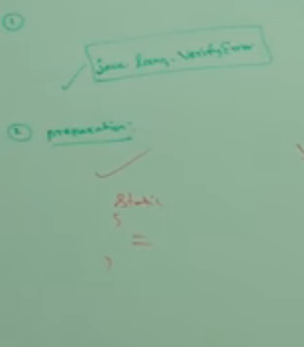 ①
java.lang.VerifyError
② preparation:
static
{
=
}